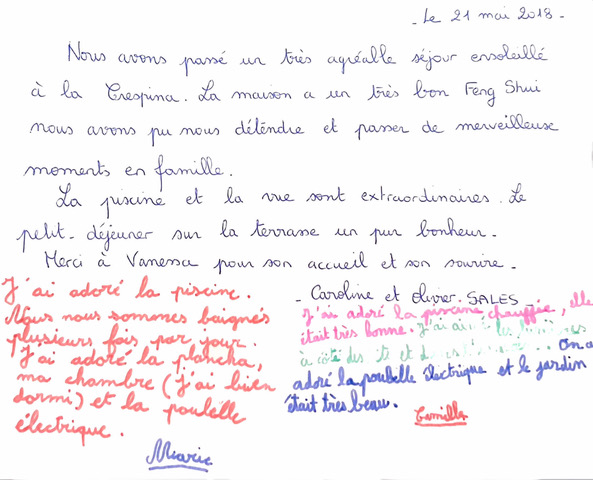 - Le 21 mai 2018 -
Nous avons passé un très agréable séjour ensoleillé
à la Crespina. La maison a un très bon Feng Shui
nous avons pu nous détendre et passer de merveilleuse
moments en famille.
La piscine et la vue sont extraordinaires. Le
petit-déjeuner sur la terrasse un pur bonheur -
Merci à Vanessa pour son accueil et son sourire -
- Caroline et Olivier. SALES -
J'ai adoré la piscine.
Nous nous sommes baignés
plusieurs fois par jour.
J'ai adoré la plancha,
ma chambre (J'ai bien
dormi) et la poubelle
électrique.
Miarie
J'ai adoré la piscine chauffée, elle
était très bonne. J'ai les
à côté des et On a
adoré la poubelle électrique et le jardin
était très beau.
Camille